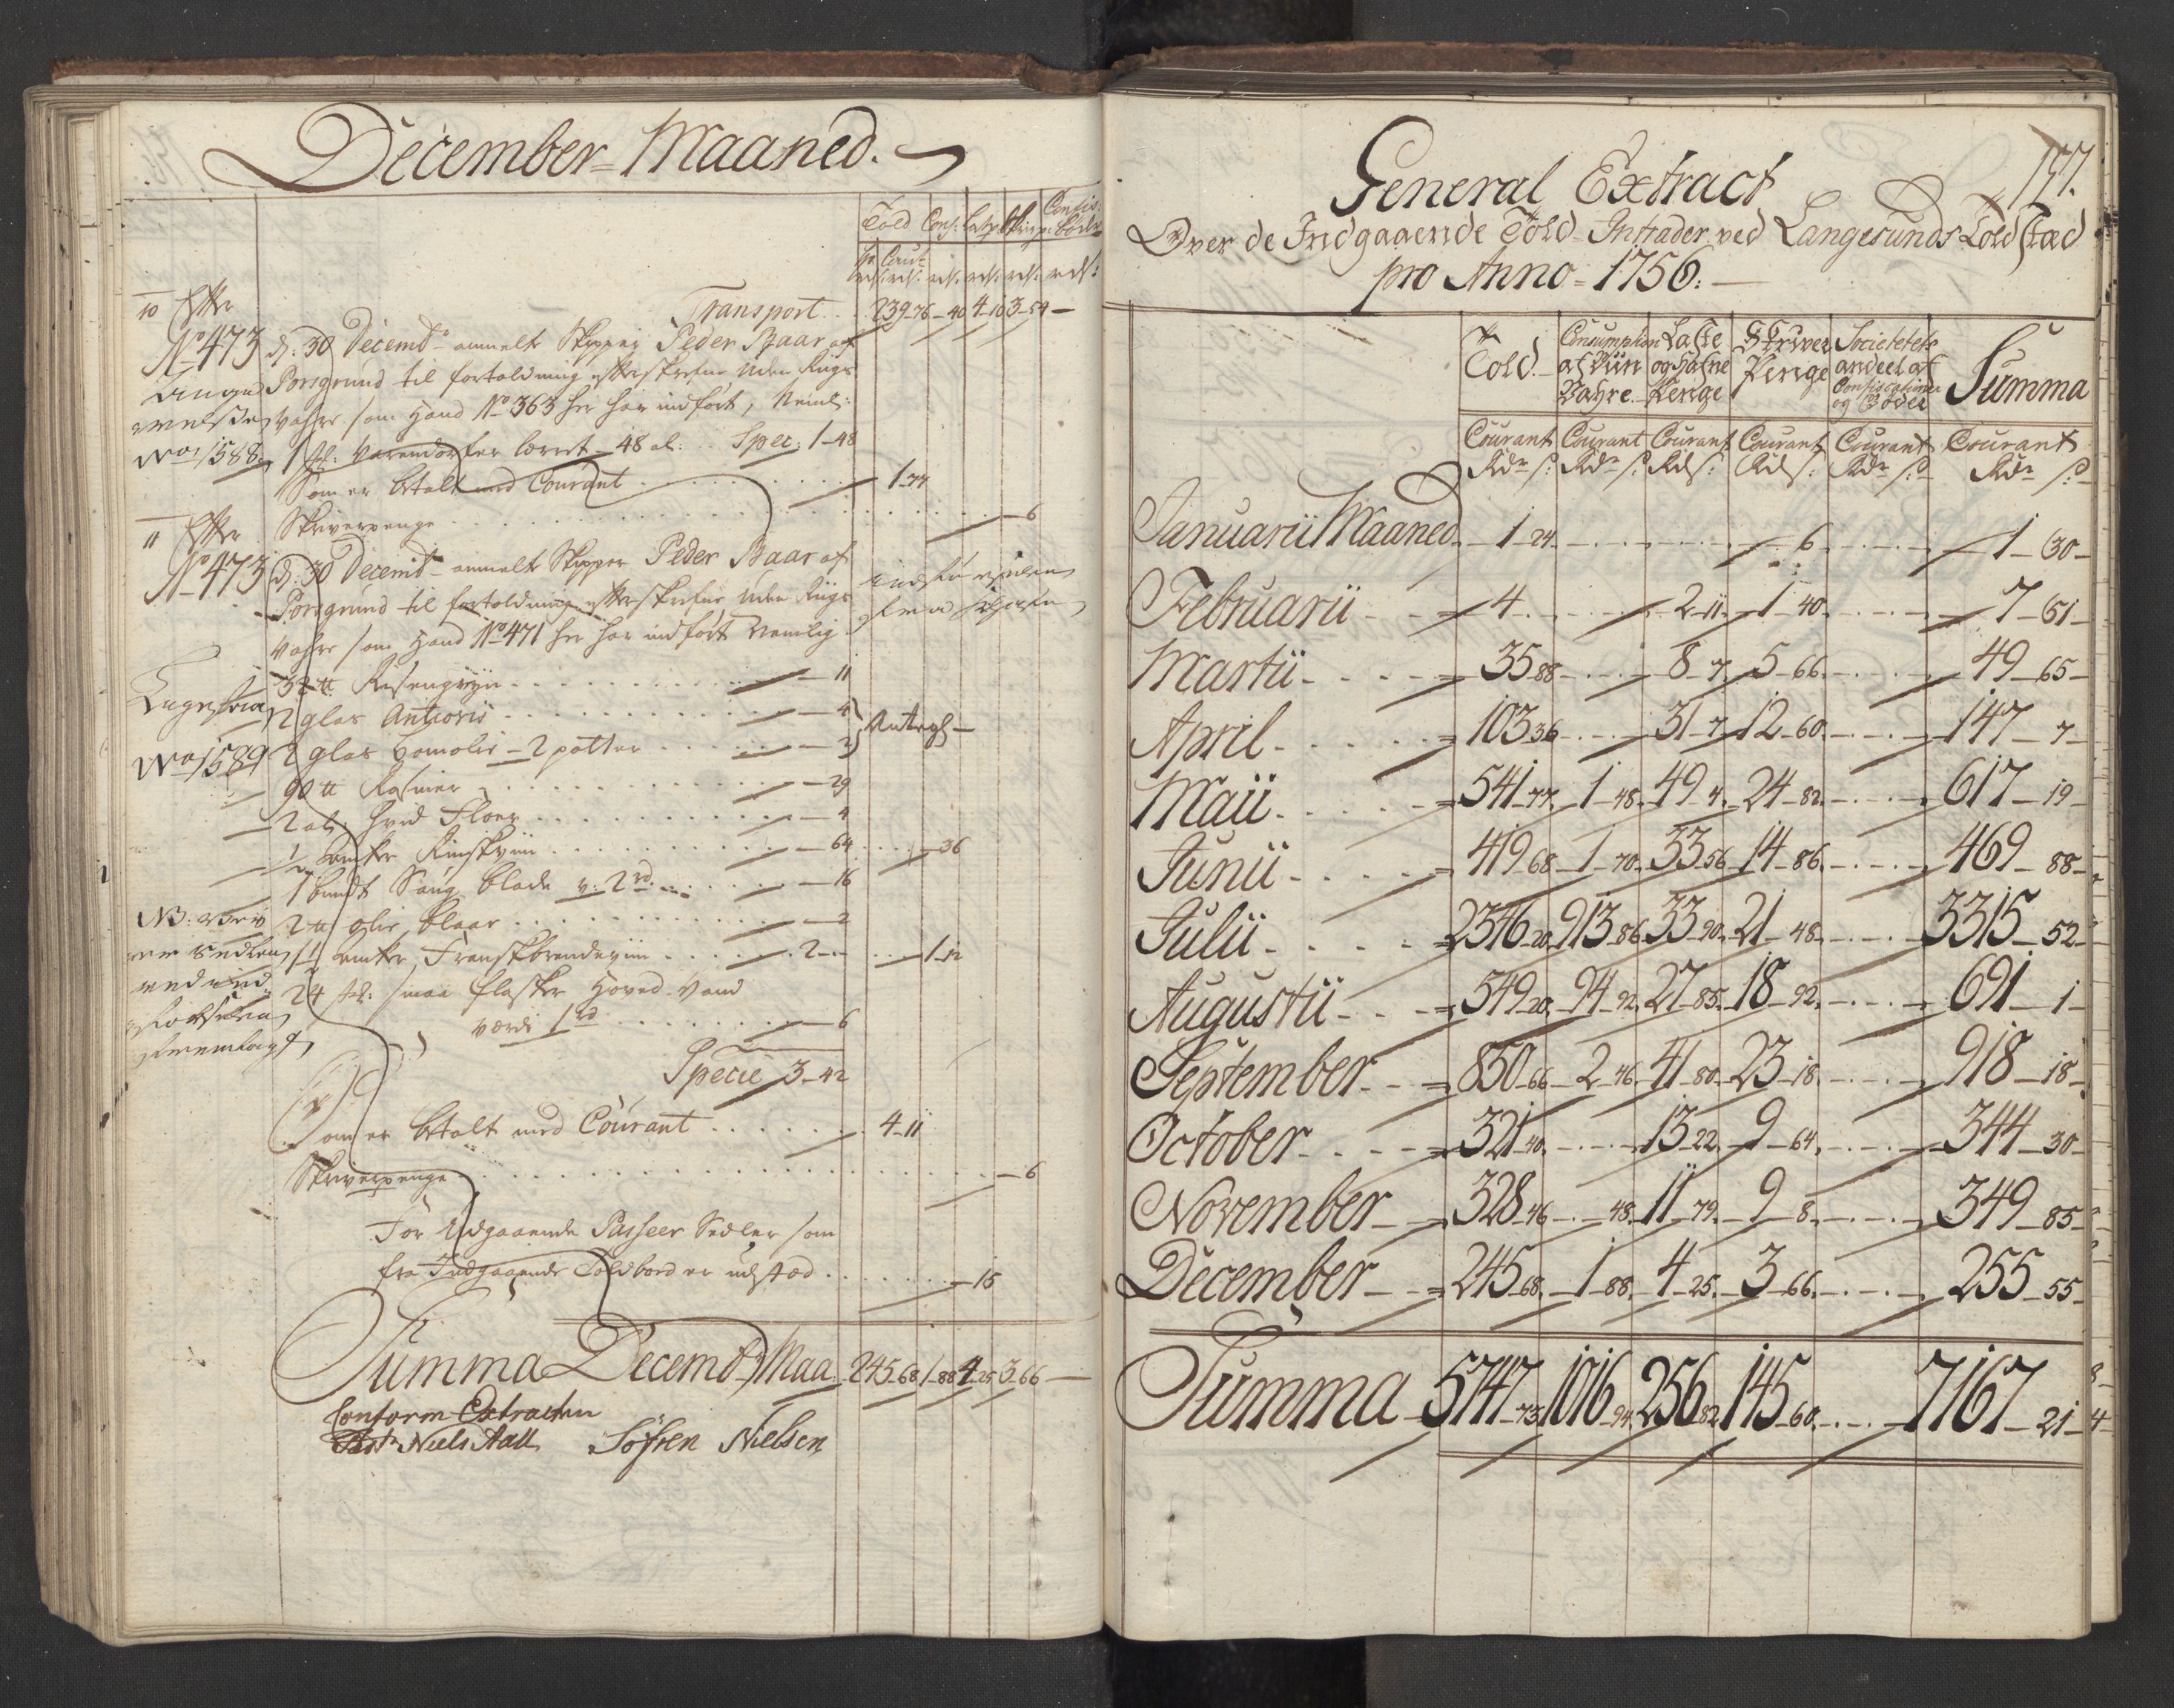 December-Maaned.
Told Cons: Lastp: Skriverp: Confis: Bøder
Transport 239-76 -40 4-10 3-54 -
10 Efter
No 473 d: 30 Decembr anmelt Skipper Peder Baar af
Porsgrund til fortoldning efterskrefne Uden Rigs
Vahre som Hand No 363 her har indført, Neml:
No 1588
1 st: Varendorfer lærret - 48 al: Spec: 1-48
Som er betalt med Courant 1-74
Skriverpenge -6
11 Efter
No 473 d: 30 Decembr anmelt Skipper Peder Baar af
Porsgrund til fortoldning efterskrefne Uden Rigs
Vahre som Hand No 471 her har indført Nemlig
32 tt Risengryn -11
2 glas -4
No 1589 2 glas - 2 potter -2
90 tt Rosiner -29
2 al: hvid Floer -4
1/2 anker Rinskviin -64 -36
1 bundt Saug blade v: 2 rd -16
NB:
2 tt blaar -2
anker Franskbrendeviin 2- 1-12
24 st: smaa flasker Hoved-Vand
værdi 1 rd -6
Specie 3-42
Som er betalt med Courant 4-11
Skriverpenge -6
For Udgaaende Passeer Sedler som
fra Indgaaende Toldbord er udstæd -15
Summa Decembr Maa 245-68 1-88 4-25 3-66 -
Conform Extracten
Niels Aall Søfren Nielsen
197.
General Extract
Over de Indgaaende Told-Intrader ved Langesunds Told Stæd
pro Anno-1756.
Told. Consumption af Viin Vahre Laste og Hafne Penge Skriver Penge Societetets andeel af Confiscationer og Bøder Summa
Courant Courant Courant Courant Courant Courant
Rdr s: Rdr s: Rd s: Rd s: Rdr s: Rdr s:
Januarii Maaned 1-24 6 1-30
Februarii 4 2-11 1-40 7-51
Martii 35-88 8-7 5-66 49-65
April 103-36 31-7 12-60 147-7
Maii 541-77 1-48 49-4 24-82 617-19
Junii 419-68 1-70 33-56 14-86 469-88
Julii 2346-20 913-86 33-90 21-48 3315-52
Augustii 549-20 94-92 27-85 18-92 691-1
September 850-66 2-46 41-80 23-18 918-18
October 321-40 13-22 9-64 344-30
November 328-46 48 11-79 9-8 349-85
December 245-68 1-88 4-25 3-66 255-55
Summa 5747-73 1016-94 256-82 145-60 7167-21